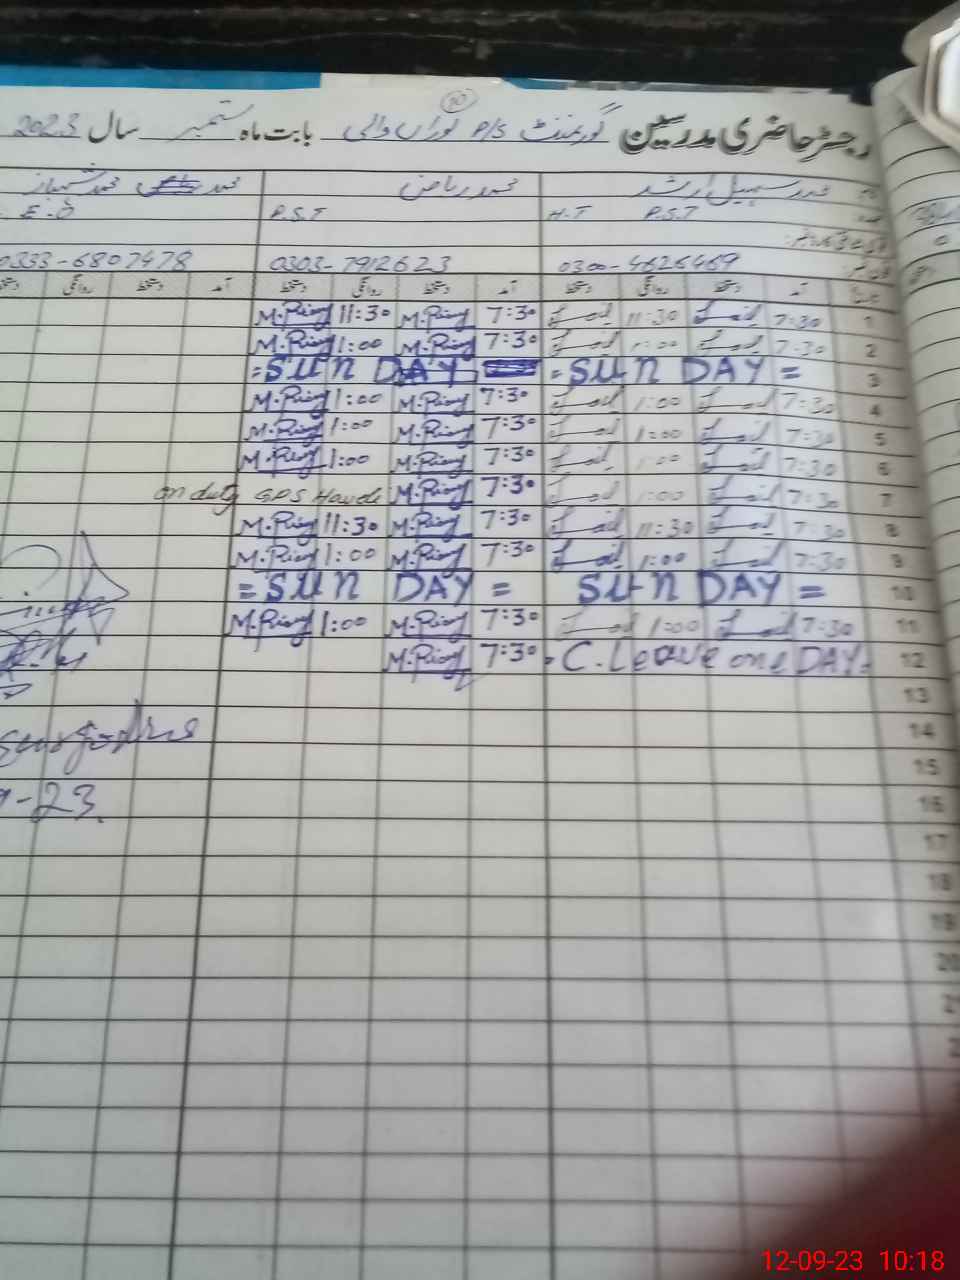 10
رجسٹر حاضری مدرسین گورنمنٹ P/S نوراں والی بابت ماہ ستمبر سال 2023
محمد سہیل ارشد محمد ریاض محمد شہباز
H.T P.S.T P.S.T
0300-4626469 0303-7912623 0333-6807478
آمد دستخط روانگی دستخط آمد دستخط روانگی دستخط آمد دستخط روانگی
1 7:30 11:30 7:30 M.Riaz 11:30 M.Riaz
2 7:30 1:00 7:30 M.Riaz 1:00 M.Riaz
3 = SUN DAY = = SUN DAY
4 7:30 1:00 7:30 M.Riaz 1:00 M.Riaz
5 7:30 1:00 7:30 M.Riaz 1:00 M.Riaz
6 7:30 1:00 7:30 M.Riaz 1:00 M.Riaz
7 7:30 1:00 7:30 M.Riaz on duty GPS
8 7:30 11:30 7:30 M.Riaz 11:30 M.Riaz
9 7:30 1:00 7:30 M.Riaz 1:00 M.Riaz
10 SUN DAY = = SUN DAY =
11 7:30 1:00 7:30 M.Riaz 1:00 M.Riaz
12 = C. Leave one DAY = 7:30 M.Riaz
13
14
15
16
17
18
19
20
-23
12-09-23 10:18